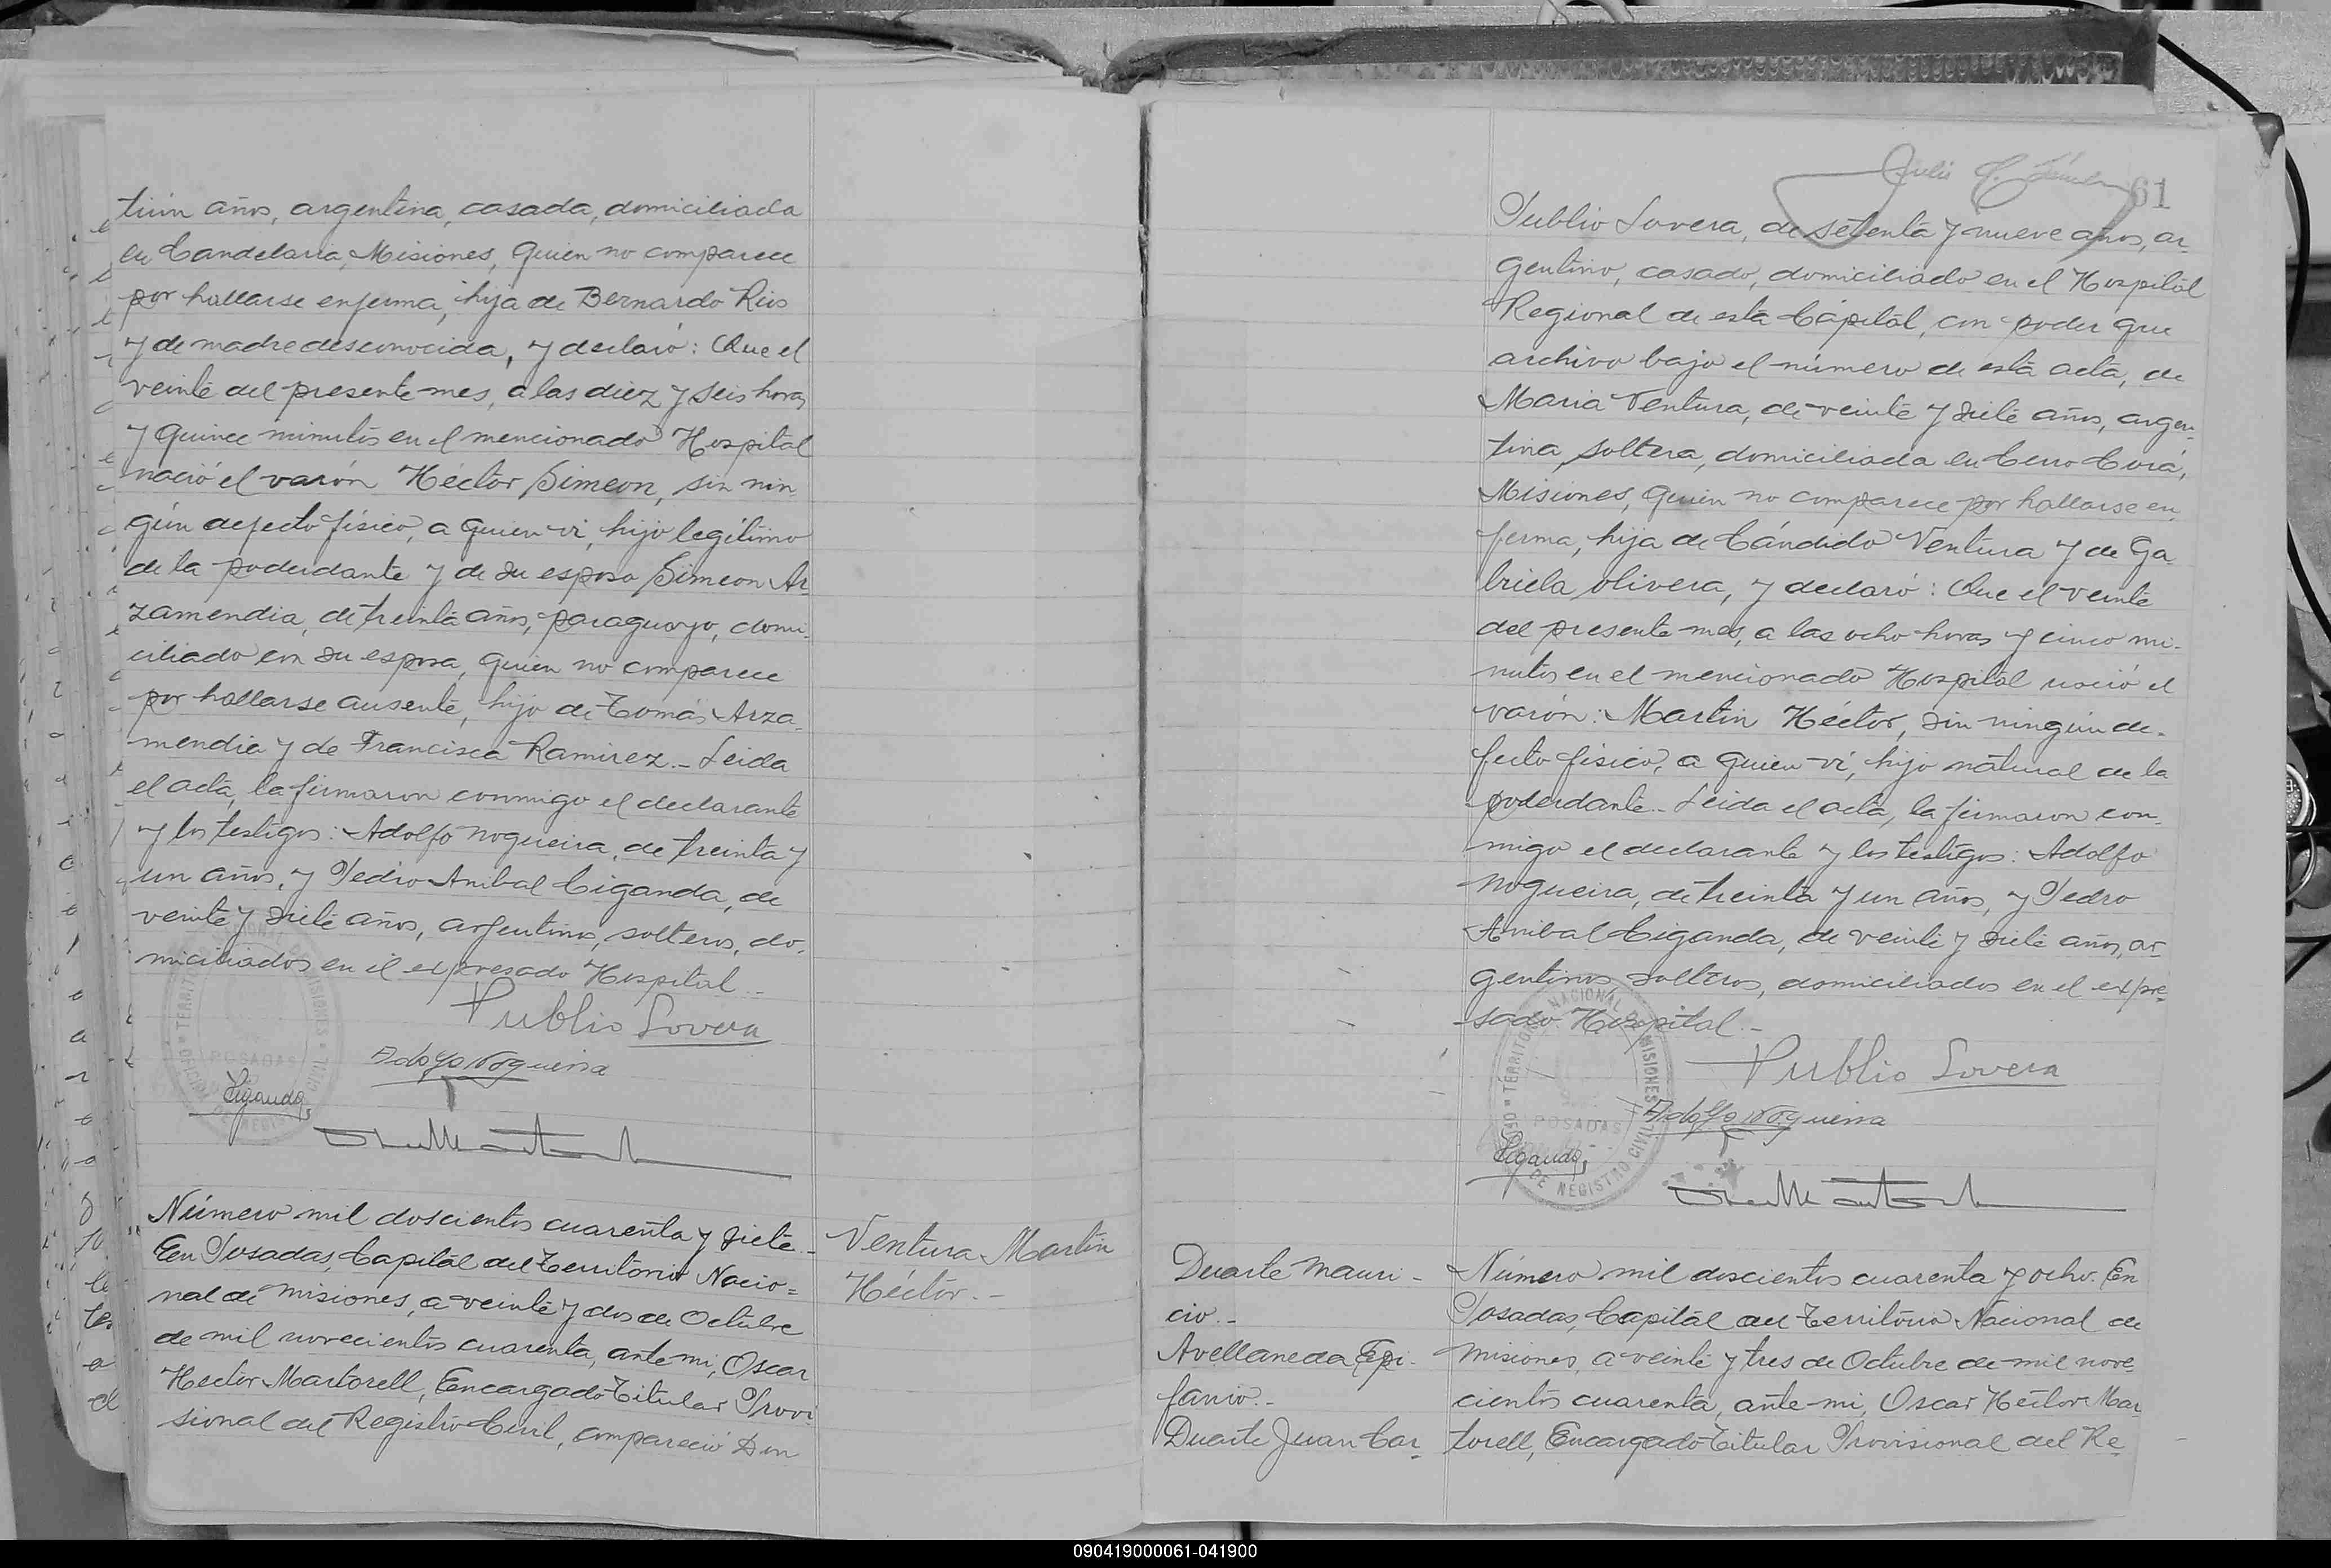 tiún años, argentina, casada, domiciliada
en Candelaria, Misiones, quien no comparece
por hallarse enferma, hija de Bernardo Rios
y de madre desconocida, y declaró: Que el
veinte del presente mes, a las diez y seis horas
y quince minutos en el mencionado Hospital
nació el varón Héctor Simeon, sin nin
gún defecto físico, a quien vi, hijo legítimo
de la poderdante y de su esposo Simeon Ar
zamendia, de treinta años, paraguayo, domi-
ciliado con su esposa, quien no comparece
por hallarse ausente, hijo de Tomás Arza-
mendia y de Francisca Ramirez.- Leida
el acta, la firmaron conmigo el declarante
y los testigos: Adolfo Nogueira, de treinta y
un años, y Pedro Anibal Ciganda, de
veinte y siete años, argentinos, solteros, do-
miciliados en el expresado Hospital.-
Publio Lovera
Adolfo Nogueira
Ciganda
TERRITORIO NACIONAL DE MISIONES
POSADAS
Número mil doscientos cuarenta y siete.-
En Posadas, Capital del Territorio Nacio=
nal de Misiones, a veinte y dos de Octubre
de mil novecientos cuarenta, ante mi, Oscar
Hector Martorell, Encargado Titular Provi
sional del Registro Civil, compareció Don
Ventura Martin
Héctor.-
61
Publio Lovera, de setenta y nueve años, ar
gentino, casado, domiciliado en el Hospital
Regional de esta Capital, con poder que
archivo bajo el número de esta acta, de
Maria Ventura, de veinte y siete años, argen-
tina, soltera, domiciliada en Cerro Corá,
Misiones, quien no comparece por hallarse en
ferma, hija de Cándido Ventura y de Ga
briela Olivera, y declaró: Que el veinte
del presente mes, a las ocho horas y cinco mi-
nutos en el mencionado Hospital nació el
varón: Martin Héctor, sin ningún de-
fecto físico, a quien vi, hijo natural de la
poderdante.- Leida el acta, la firmaron con-
migo el declarante y los testigos: Adolfo
Nogueira, de treinta y un años, y Pedro
Anibal Ciganda, de veinte y siete años, ar-
gentinos, solteros, domiciliados en el expre-
sado Hospital.-
Publio Lovera
Adolfo Nogueira
Ciganda
TERRITORIO NACIONAL DE MISIONES
POSADAS
DE REGISTRO CIVIL
Duarte Mauri-
cio.-
Avellaneda Epi-
fanio.-
Duarte Juan Car-
Número mil doscientos cuarenta y ocho. En
Posadas, Capital del Territorio Nacional de
Misiones, a veinte y tres de Octubre de mil nove-
cientos cuarenta, ante mi, Oscar Héctor Mar
torell, Encargado Titular Provisional del Re-
090419000061-041900